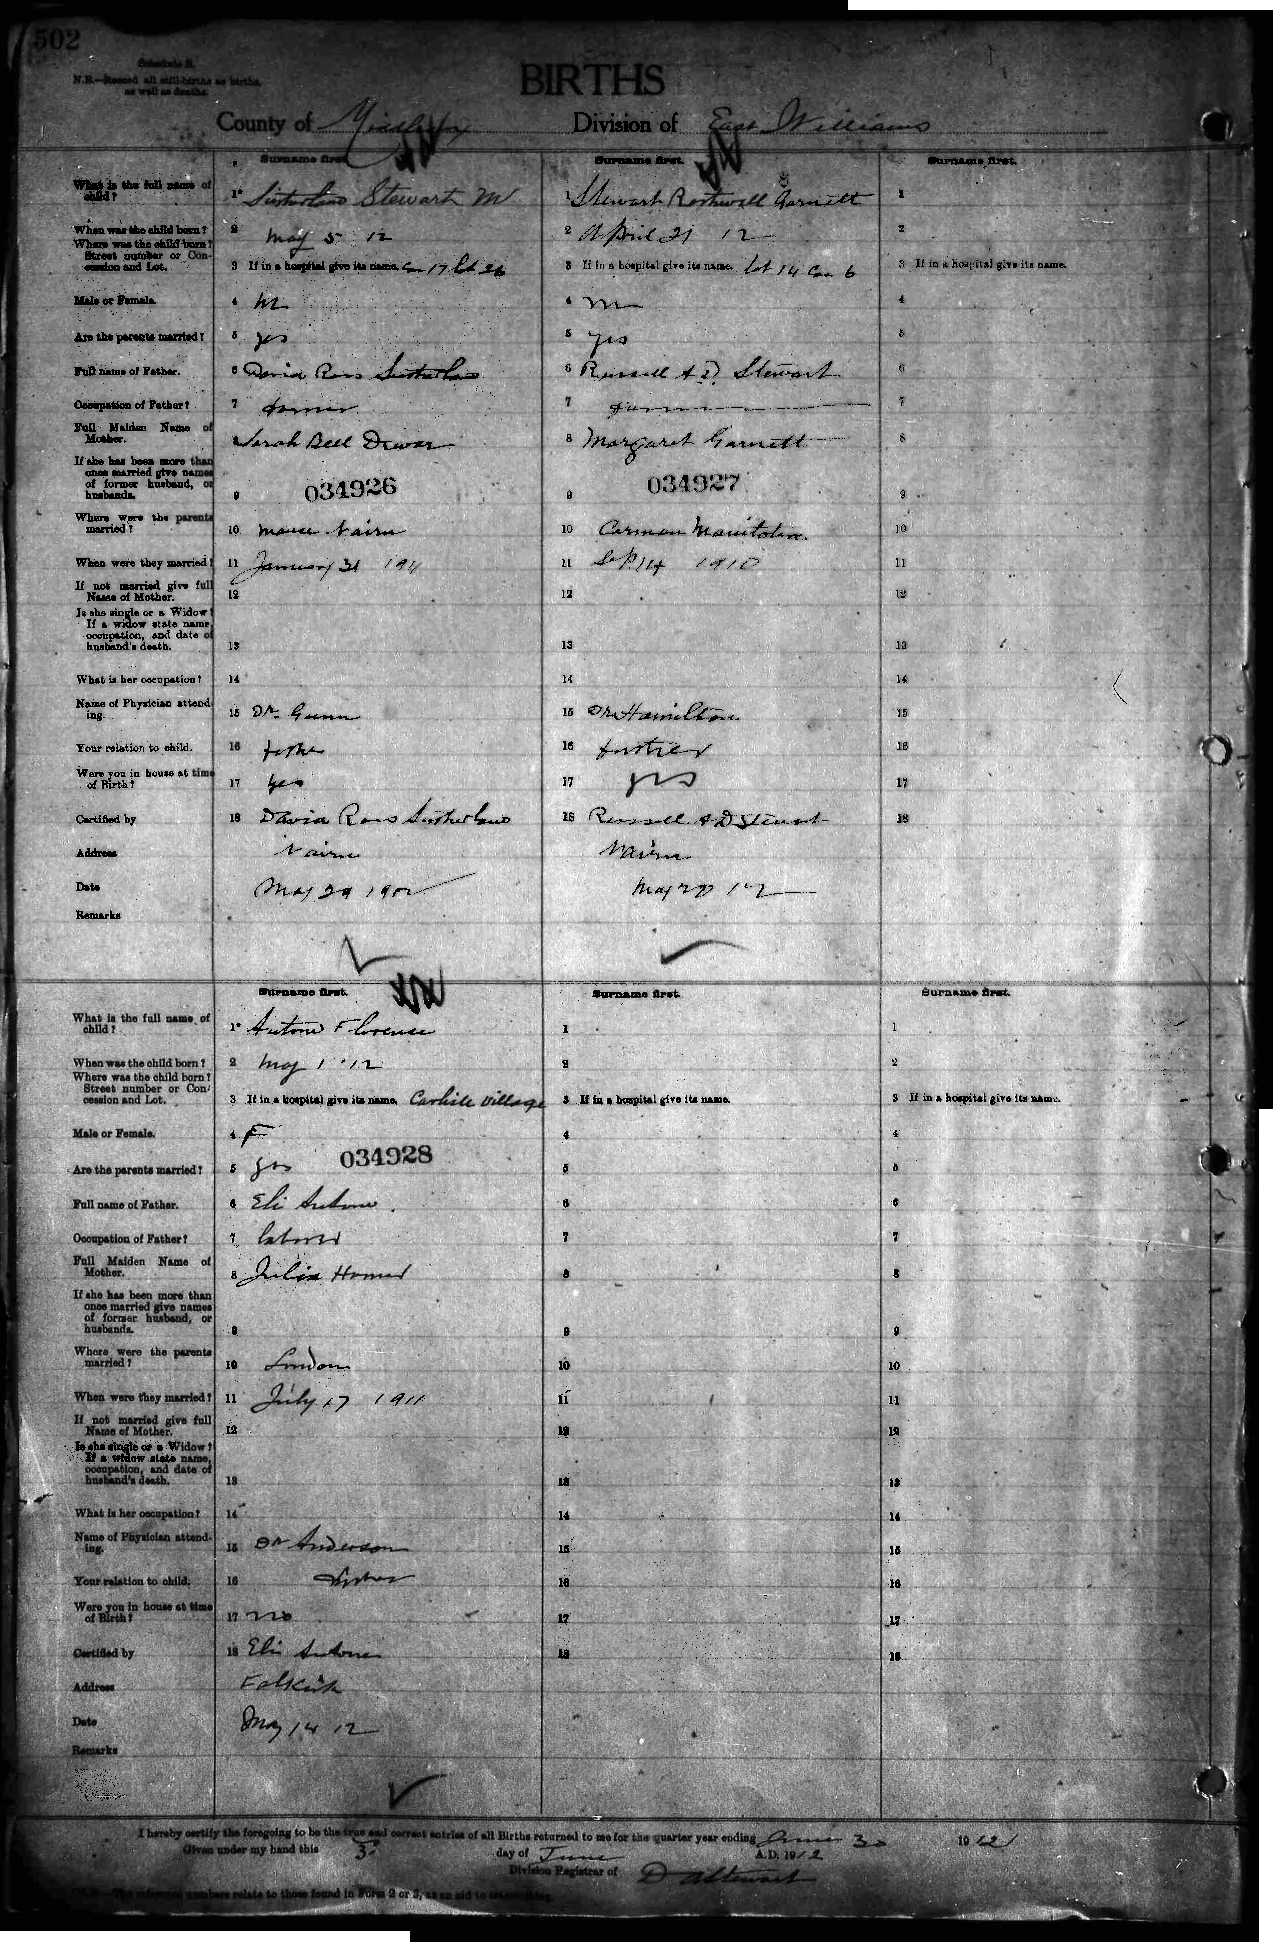 502
Schedule B.
N.B.—Record all still-births as births,
as well as deaths.
BIRTHS
County of Middlesex Division of East Williams
Surname first. Surname first. Surname first.
What is the full name of child? 1 Sutherland Stewart M 1 Stewart Rothwell Garnett 1
When was the child born? 2 May 5 12 2 April 21 12 2
Where was the child born? Street number or Concession and Lot. 3 If in a hospital give its name. Con 17 lot 26 3 If in a hospital give its name. lot 14 Con 6 3 If in a hospital give its name.
Male or Female. 4 M 4 m 4
Are the parents married? 5 yes 5 yes 5
Full name of Father. 6 David Ross Sutherland 6 Russell A D. Stewart 6
Occupation of Father? 7 farmer 7 farmer 7
Full Maiden Name of Mother. 8 Sarah Bell Dewar 8 Margaret Garnett 8
If she has been more than once married give names of former husband, or husbands. 9 034926 9 034927 9
Where were the parents married? 10 manse Nairn 10 Carman Manitoba. 10
When were they married? 11 January 31 1911 11 Sep 14 1910 11
If not married give full Name of Mother. 12 12 12
Is she single or a Widow? If a widow state name, occupation, and date of husband's death. 13 13 13
What is her occupation? 14 14 14
Name of Physician attending. 15 Dr. Gunn 15 Dr Hamilton 15
Your relation to child. 16 father 16 father 16
Were you in house at time of Birth? 17 yes 17 yes 17
Certified by 18 David Ross Sutherland 18 Russell A D Stewart 18
Address Nairn Nairn
Date May 29 May 12
Remarks
Surname first. Surname first. Surname first.
What is the full name of child? 1 Antone Florence 1 1
When was the child born? 2 May 1 12 2 2
Where was the child born? Street number or Concession and Lot. 3 If in a hospital give its name. Carlisle Village 3 If in a hospital give its name. 3 If in a hospital give its name.
Male or Female. 4 F 4 4
Are the parents married? 5 yes 034928 5 5
Full name of Father. 6 Eli Antone. 6 6
Occupation of Father? 7 laborer 7 7
Full Maiden Name of Mother. 8 Julia Homer 8 8
If she has been more than once married give names of former husband, or husbands. 9 9 9
Where were the parents married? 10 London 10 10
When were they married? 11 July 17 1911 11 11
If not married give full Name of Mother. 12 12 12
Is she single or a Widow? If a widow state name, occupation, and date of husband's death. 13 13 13
What is her occupation? 14 14 14
Name of Physician attending. 15 Dr Anderson 15 15
Your relation to child. 16 father 16 16
Were you in house at time of Birth? 17 no 17 17
Certified by 18 Eli Antone 18 18
Address Falkirk
Date May 14 12
Remarks
I hereby certify the foregoing to be the true and correct entries of all Births returned to me for the quarter year ending June 30 1912
Given under my hand this day of June A.D. 1912
Division Registrar of D A Stewart
N.B.—The reference numbers relate to those found in Form 2 or 3, as an aid to